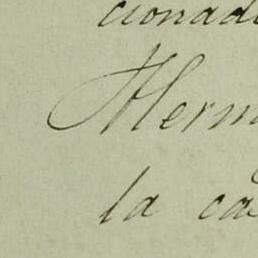 cionad
Herm
la ca